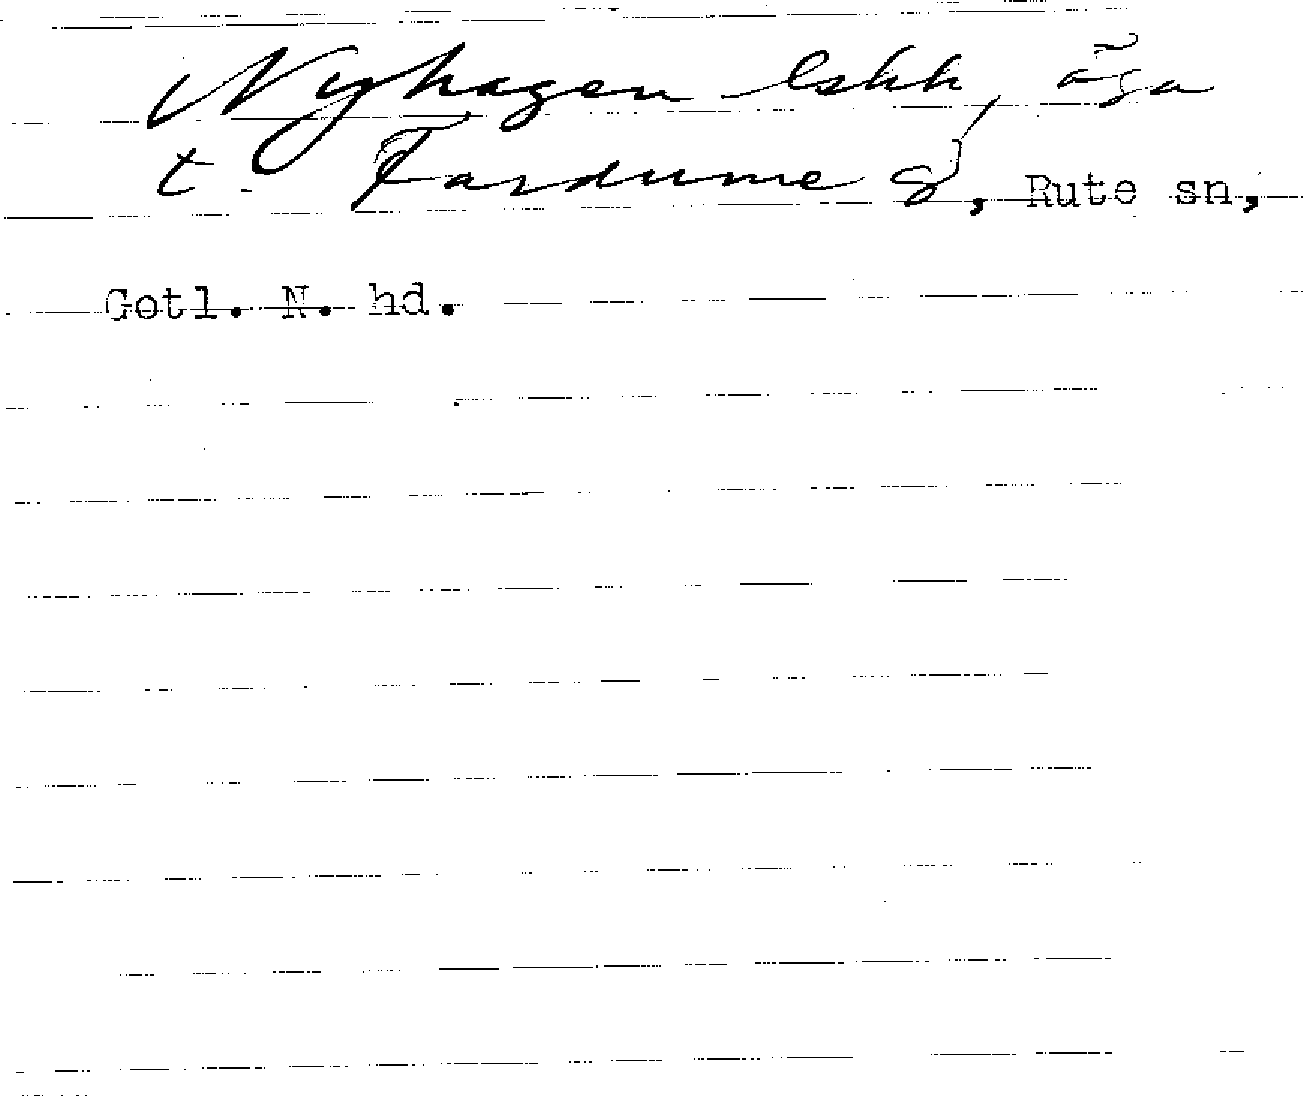 Nyhagen lskh, äga
t. Fardume g, Rute sn,
Gotl. N. hd.